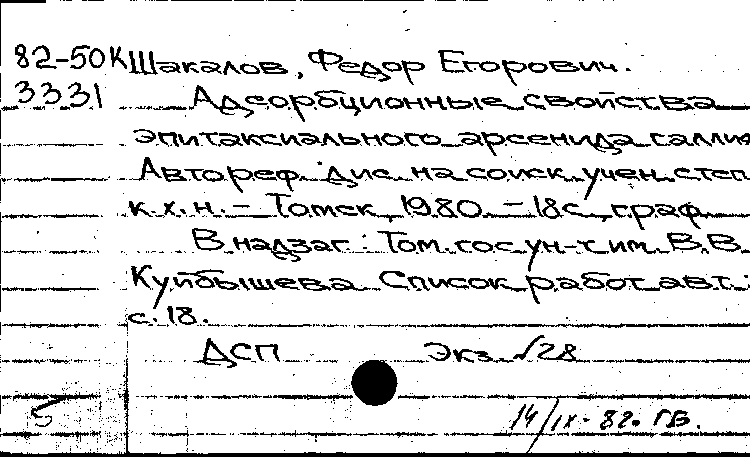 82-50К Шакалов, Федор Егорович.
3331 Адсорбционные свойства
эпитаксиального арсенида галлия
Автореф. дис. на соиск. учен. степ.
к.х.н. – Томск, 1980. – 18с., граф.
В надзаг: Том. гос. ун-т им. В.В.
Куйбышева. Список работ авт.:
с. 18.
ДСП Экз. №28
14/IX-82. ГВ.